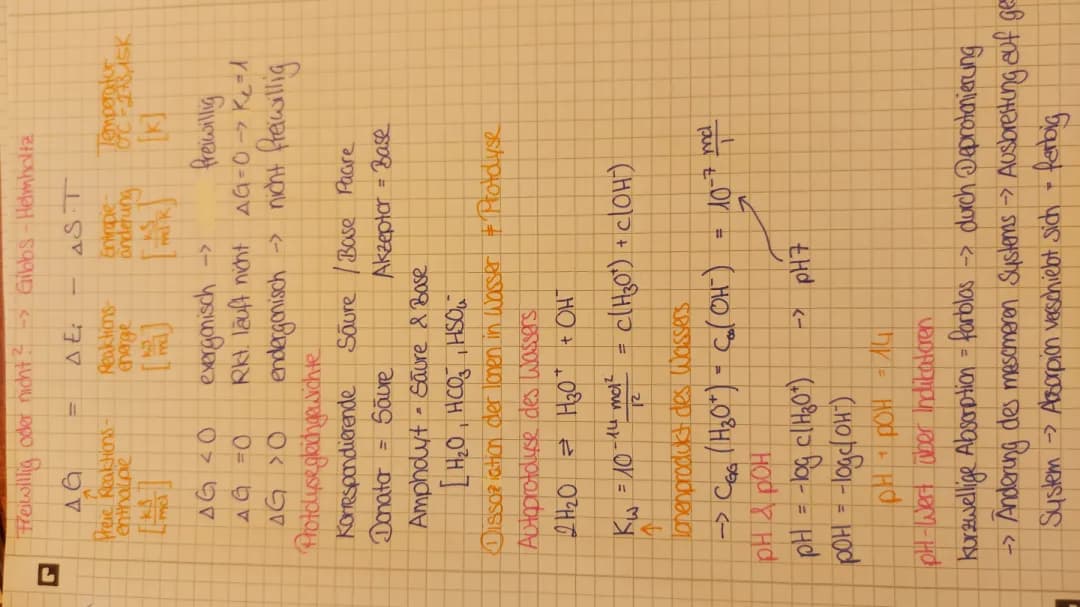 Freiwillig oder nicht? -> Gibbs-Helmholtz
ΔG = ΔEi - ΔS·T
Freie Reaktions- Reaktions- Entropie- Temperatur
enthalpie energie änderung 0°C = 273,15K
[kJ/mol] [kJ/mol] [kJ/mol·K] [K]
ΔG < 0 exergonisch -> freiwillig
ΔG = 0 Rkt läuft nicht ΔG=0 -> KL=1
ΔG > 0 endergonisch -> nicht freiwillig
Protolysegleichgewichte
Korrespondierende Säure / Base Paare
Donator = Säure Akzeptor = Base
Ampholyt = Säure & Base
[H₂O, HCO₃⁻, HSO₄⁻
① Dissoziation der Ionen in Wasser ≠ Protolyse
Autoprotolyse des Wassers
2H₂O ⇌ H₃O⁺ + OH⁻
Kw = 10⁻¹⁴ mol²/l² = c(H₃O⁺) + c(OH)
↑
Ionenprodukt des Wassers
-> CGG (H₃O⁺) = CGG (OH⁻) = 10⁻⁷ mol/l
pH & pOH
pH = -log c(H₃O⁺) -> pH7
pOH = -log c(OH⁻)
pH + pOH = 14
pH-Wert über Indikatoren
kurzwellige Absorption = farblos -> durch Deprotonierung
-> Änderung des mesomeren Systems -> Ausbreitung auf
System -> Absorpion verschiebt sich = farbig